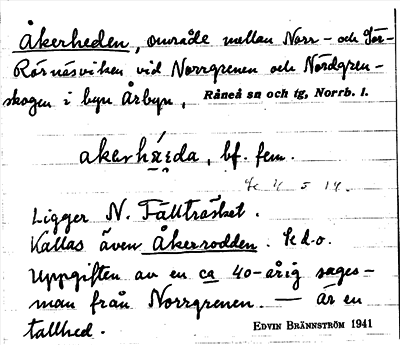 Åkerheden, område mellan Norr- och Sör-
Rörnäsviken vid Norrgrenen och Nördgren-
skogen i byn Årbyn, Råneå sn och tg, Norrb. l.
akerhä́ịda, bf. fem.
k 4 5 14.
Ligger N. Fällträsket.
Kallas även Åkerrodden. k d.o.
Uppgiften av en ca 40-årig sages-
man från Norrgrenen. — Är en
tallhed. EDVIN BRÄNNSTRÖM 1941